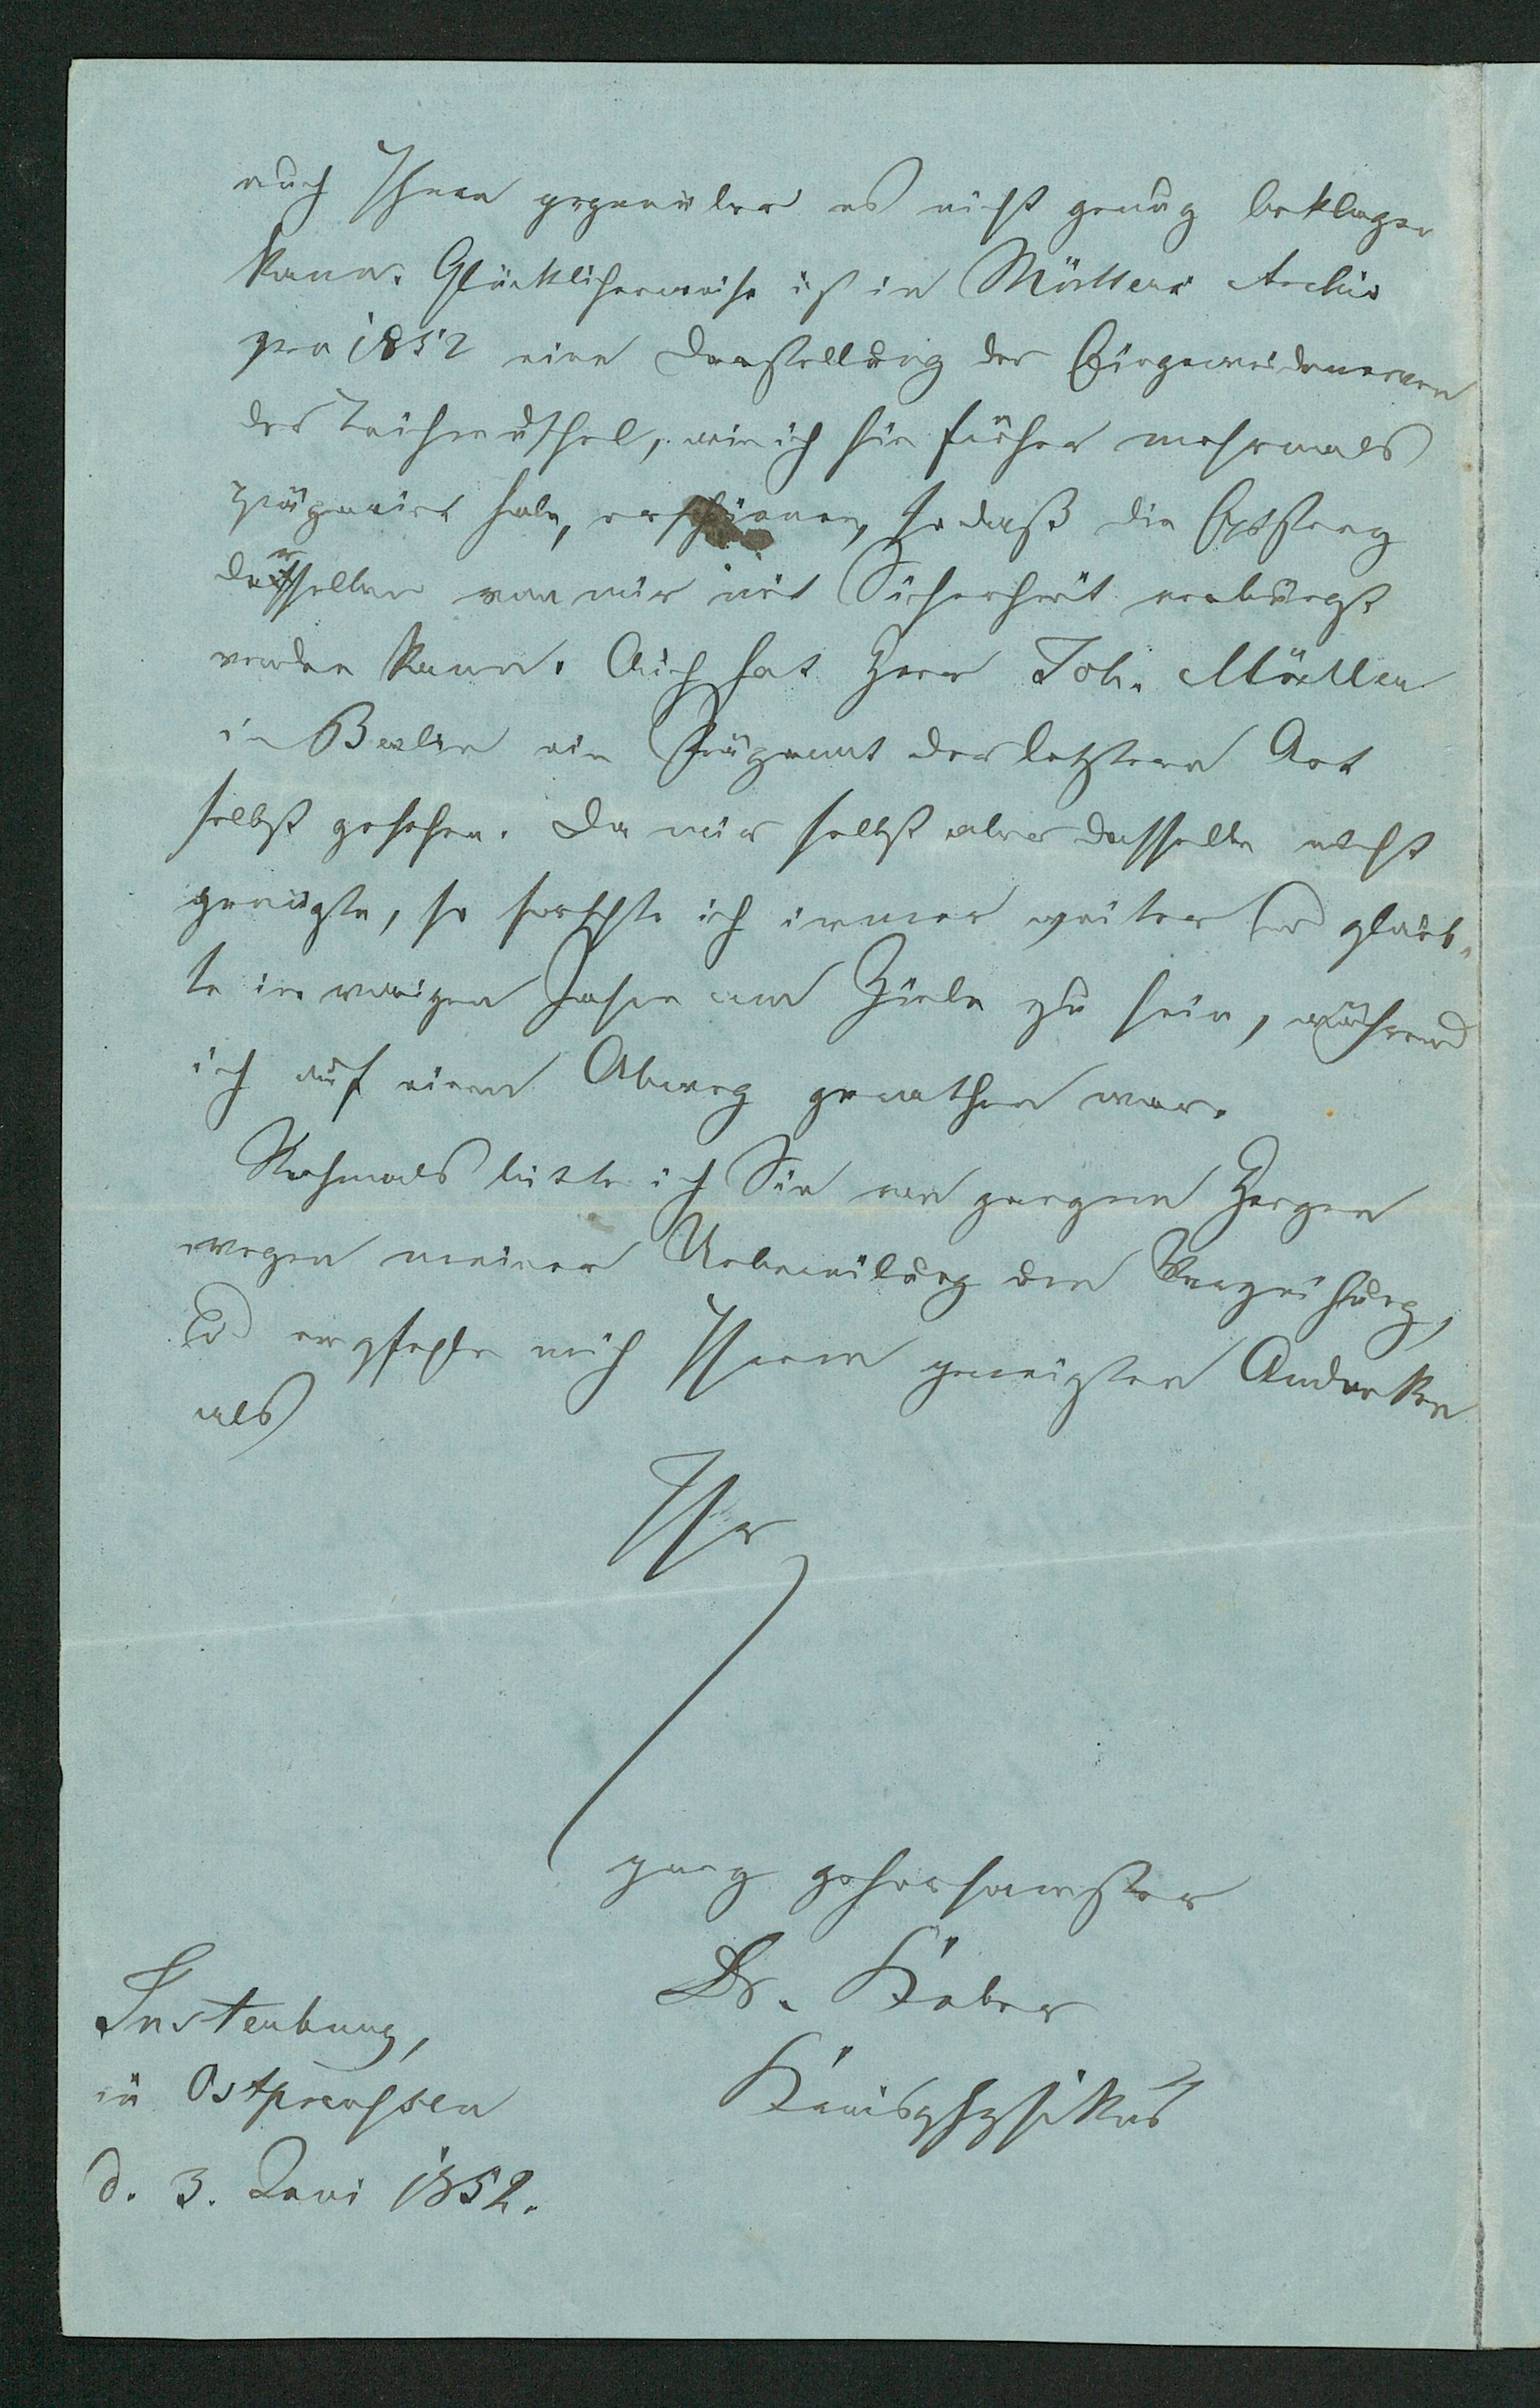 auch Ihnen gegenüber es nicht genug beklagen
kann. Glücklicherweise ist in Müllers Archiv
pro 1852 eine Darstellung der Eingeweidenerven
der Teichmuschel, wie ich sie früher mehrmals
präparirt habe, erschienen, so daß die Existenz
derselben von mir mit Sicherheit verbürgt
werden kann. Auch hat Herr Joh. Müller
in Berlin ein Präparat der letztern Art
selbst gesehen. Da mir selbst aber dasselbe nicht
genügte, so forschte ich immer weiter und glaub-
te im vorigen Jahre am Ziele zu sein, während
ich auf einen Abweg gerathen war.
Nochmals bitte ich Sie von ganzem Herzen
wegen meiner Uebereilung um Verzeihung,
und empfehle mich Ihrem geneigten Andenken
als
Ihr
ganz gehorsamster
Dr. Keber
Kreisphysikus
Insterburg,
in Ostpreussen
d. 3. Juni 1852.